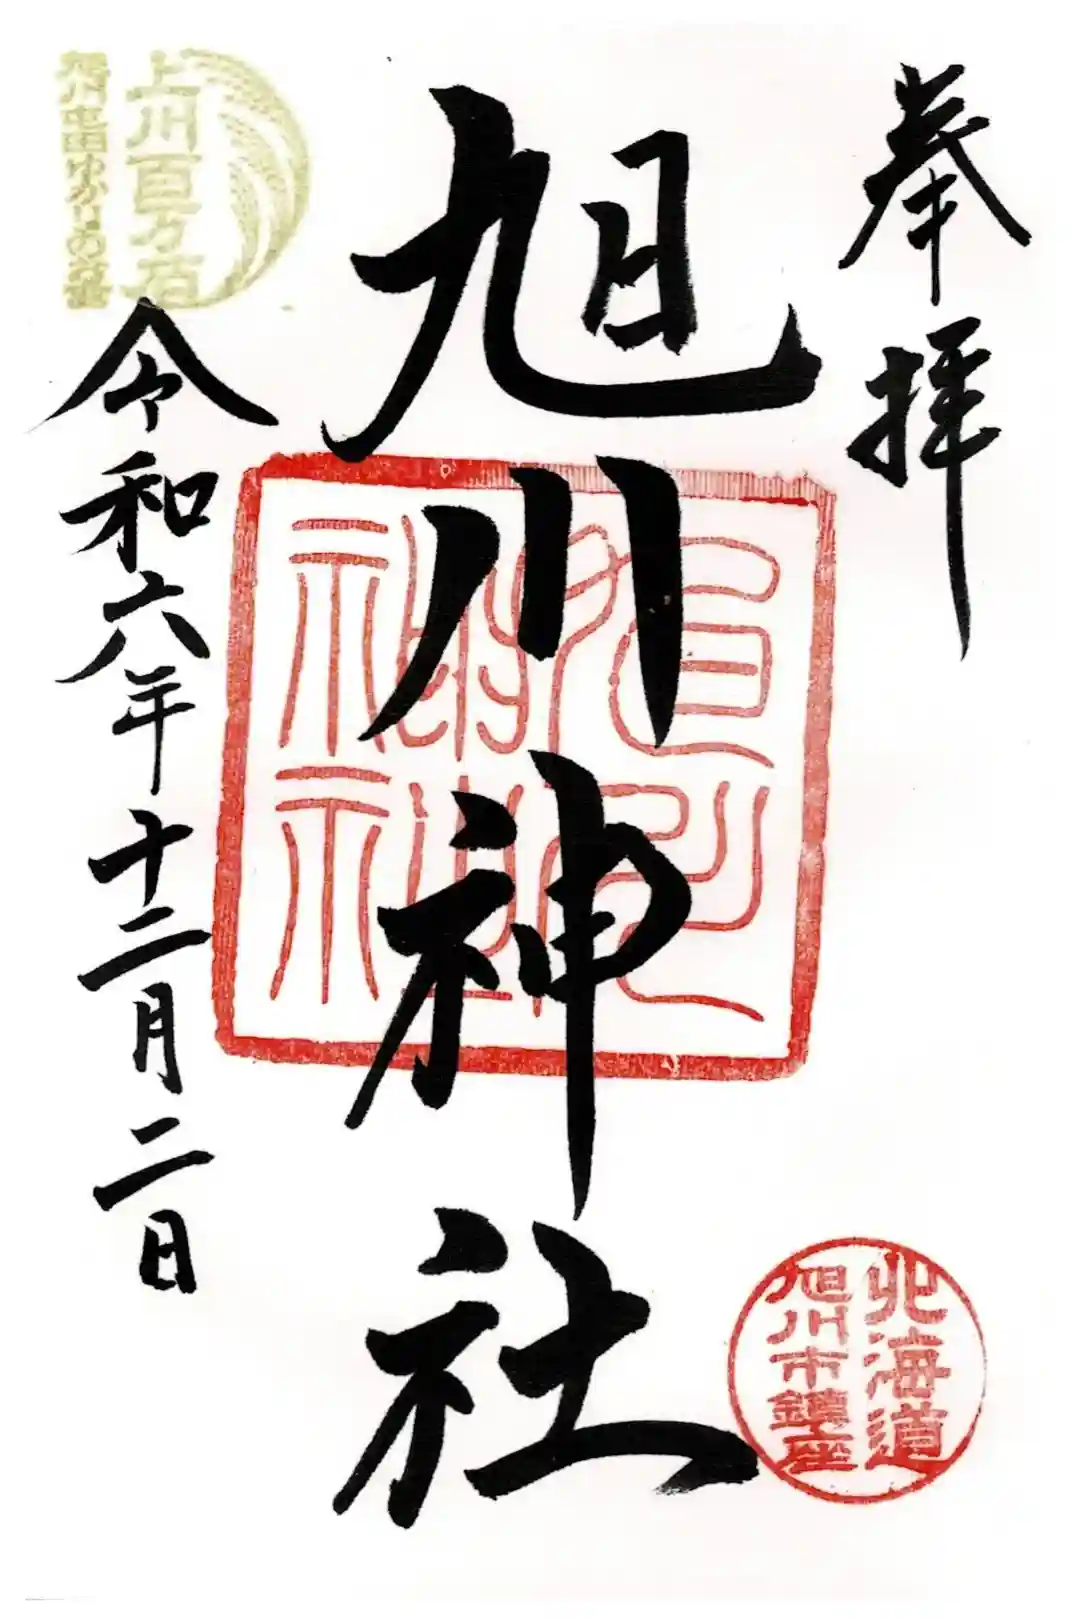 奉拝
旭川神社
旭川神社
北海道
旭川市鎮座
上川百万石
旭川屯田ゆかりの社
令和六年十二月二日